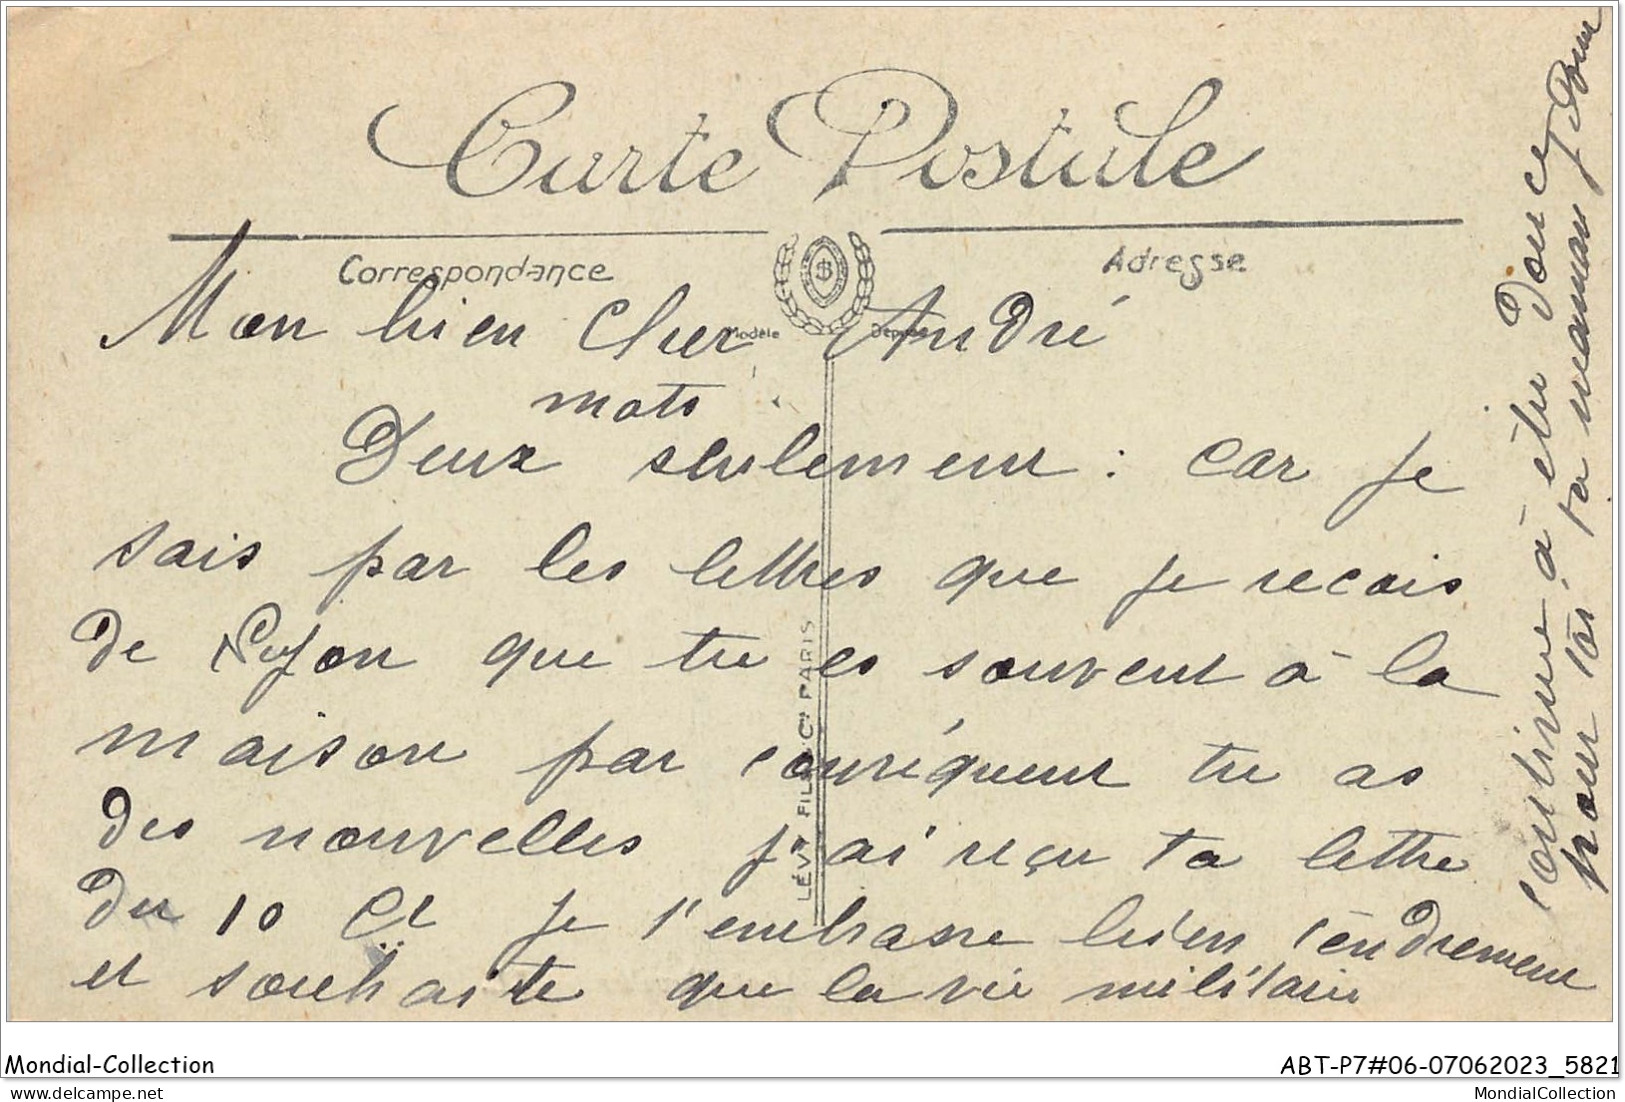 Carte Postale
Correspondance
Adresse
Modèle Déposé
Mon bien Cher André
mots
Deux seulement : car je
sais par les lettres que je recois
de que tu es souvent à la
maison par conséquent tu as
des nouvelles j'ai reçu ta lettre
du 10 Ct je t'embrasse bien tendrement
et souhaite que la vie militaire
continue à être douce
pour toi, ta maman
LÉVY FILS & Cie PARIS
Mondial-Collection
ABT-P7#06-07062023_5821
© delcampe.net
MondialCollection